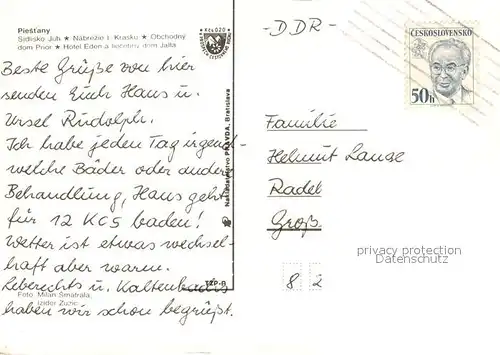 Piešťany
Sídlisko Juh ★ Nábrežie I. Krasku ★ Obchodný
dom Prior ★ Hotel Eden a liečebný dom Jalta
Beste Grüße von hier
senden Euch Hans u.
Ursel Rudolph.
Ich habe jeden Tag irgend-
welche Bäder oder andere
Behandlung, Hans geht
für 12 KCS baden!
Wetter ist etwas wechsel-
haft aber warm.
Leberechts u. Kaltenbachs
haben wir schon begrüßt.
Foto: Milan Smatrala,
Izidor Zuzic
Nakladateľstvo PRAVDA, Bratislava
TZP-B
Kčs 020
-DDR-
ČESKOSLOVENSKO
50h
Familie
Helmut Lange
Radel
Groß
privacy protection
AKPOOL.DE
8 2